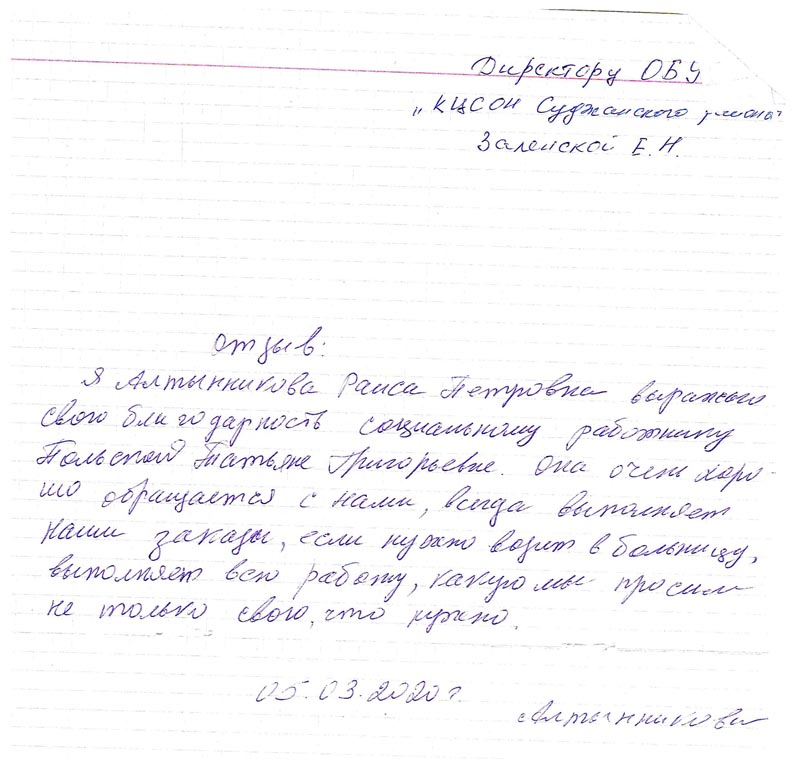 Директору ОБУ
„КЦСОН Суджанского района"
Заленской Е.Н.
отзыв:
Я Алтынникова Раиса Петровна выражаю
свою благодарность социальному работнику
Польской Татьяне Григорьевне. Она очень хоро-
шо обращается с нами, всегда выполняет
наши заказы, если нужно возит в больницу,
выполняет всю работу, какую мы просим
не только свою, что нужно.
05.03.2020г.
Алтынникова